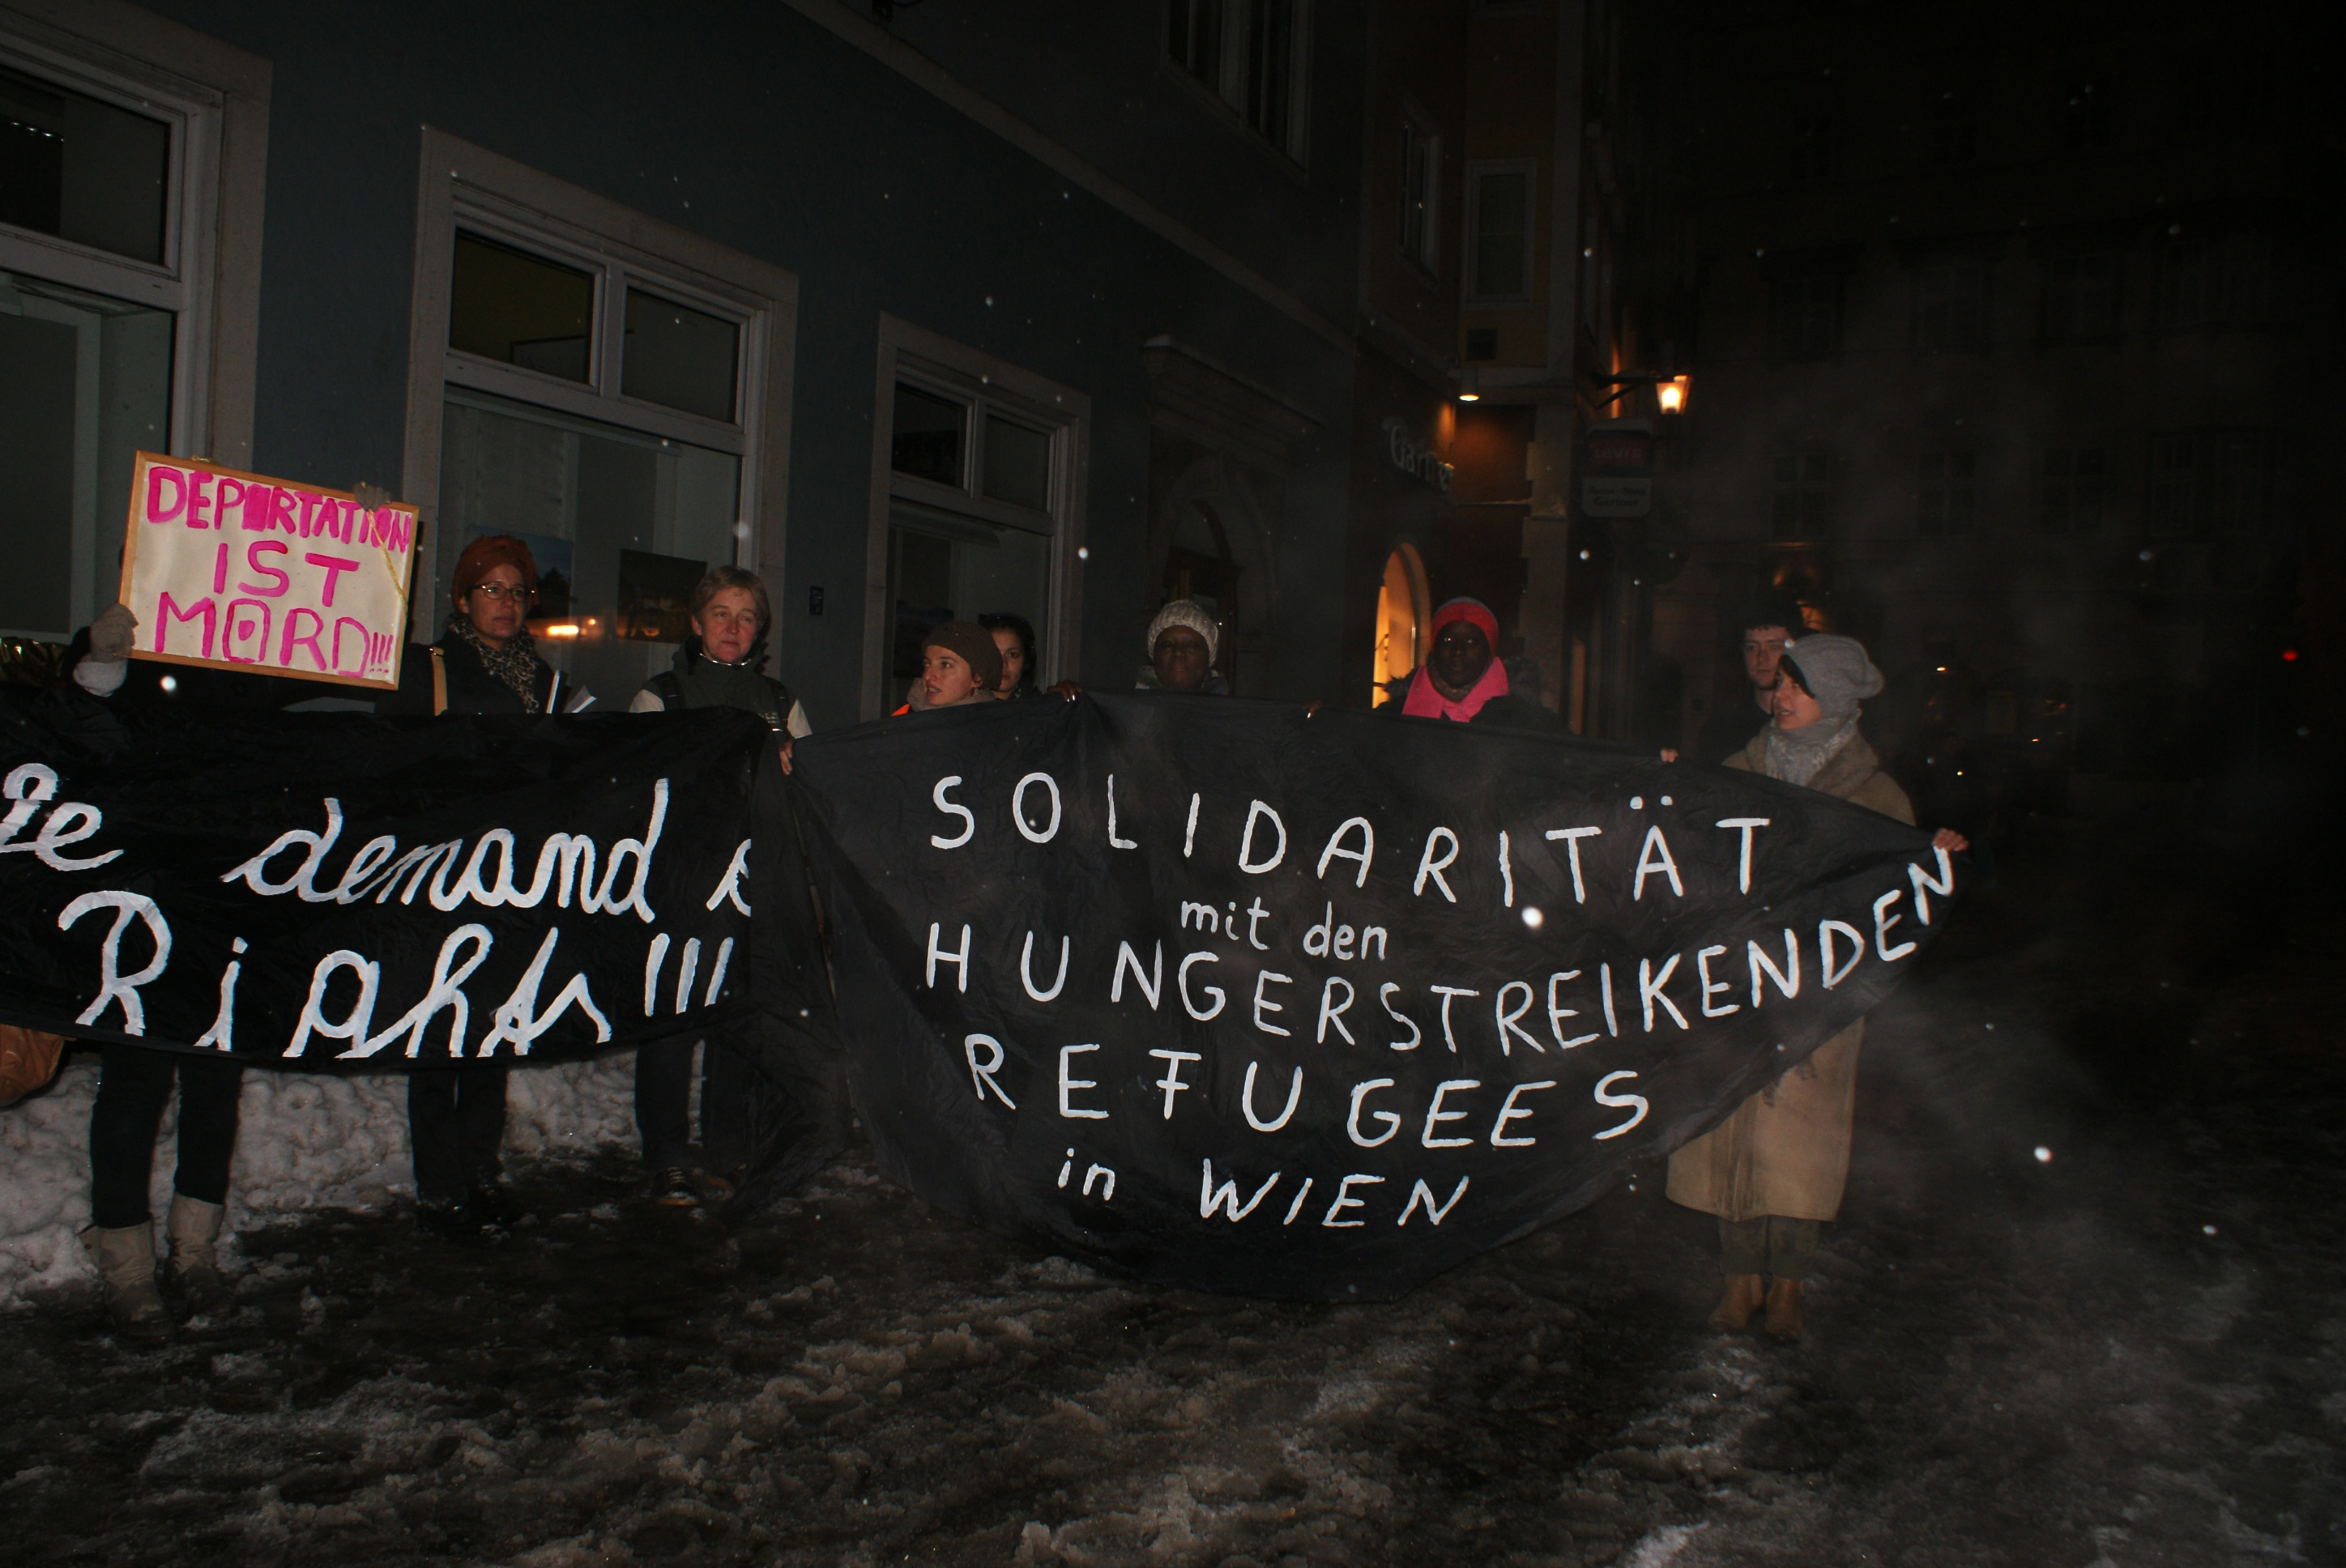 DEPORTATION
IST
MORD!!!
demand
Rights!!!
SOLIDARITÄT
mit den
HUNGERSTREIKENDEN
REFUGEES
in WIEN